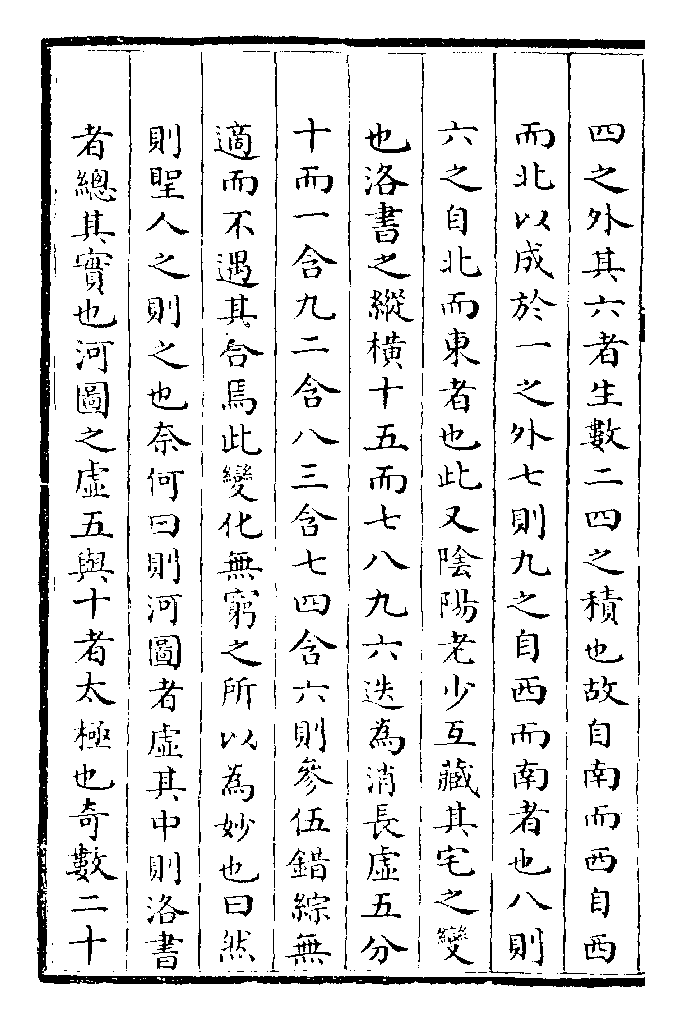 四之外其六者生數二四之積也故自南而西自西
而北以成於一之外七則九之自西而南者也八則
六之自北而東者也此又陰陽老少互藏其宅之變
也洛書之縱橫十五而七八九六迭為消長虛五分
十而一含九二含八三含七四含六則參伍錯綜無
適而不遇其合焉此變化無窮之所以為妙也曰然
則聖人之則之也奈何曰則河圖者虛其中則洛書
者總其實也河圖之虛五與十者太極也奇數二十